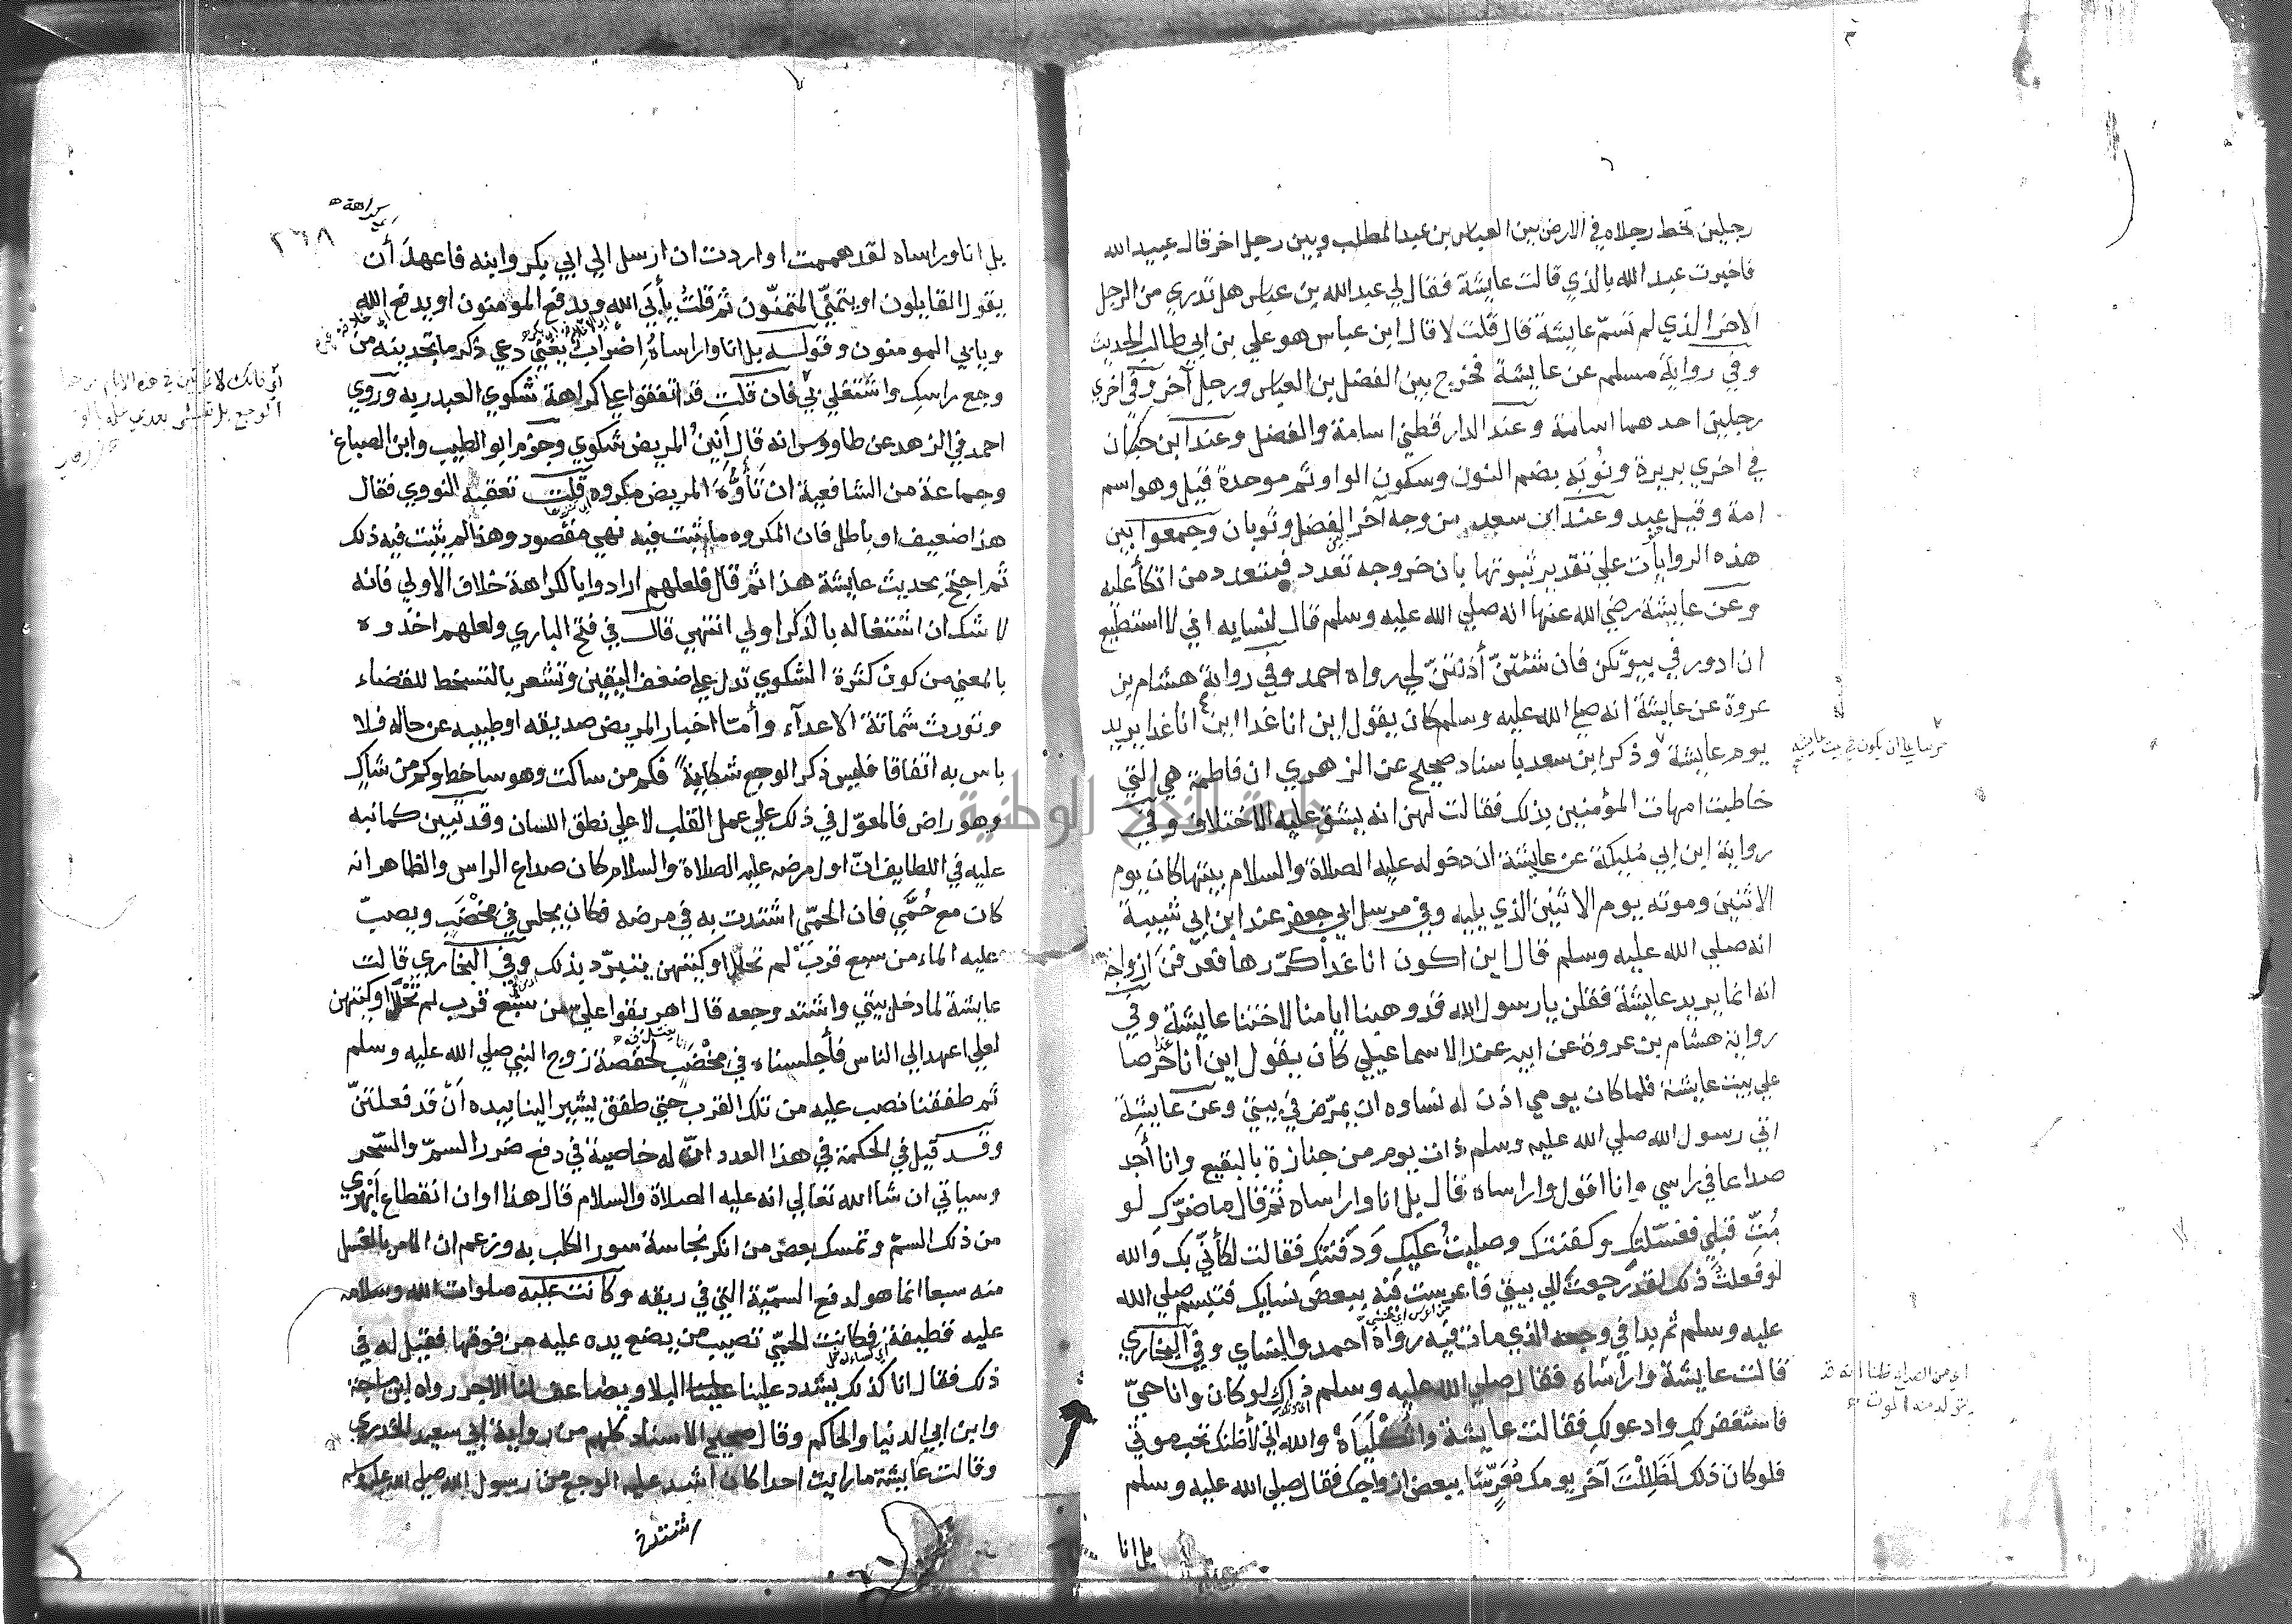 رجلين تخط رجلاه في الارض بين العباس بن عبد المطلب وبين رجل اخر قال عبيد الله
فاخبرت عبد الله بالذي قالت عايشة فقال لي عبد الله بن عباس هل تدري من الرجل
الاخر الذي لم تسم عايشة قال قلت لا قال ابن عباس هو علي بن ابي طالب الحديث
وفي رواية مسلم عن عايشة فخرج بين الفضل بن العباس ورجل آخر وفي اخري
رجلين احدهما اسامة وعند الدارقطني اسامة والفضل وعند ابن حبان
في اخري بريرة ونُوبَة بضم النون وسكون الواو ثم موحدة قيل وهو اسم
امة وقيل عبد وعند ابن سعد من وجه آخر الفضل وثوبان وجمعوا بين
هذه الروايات علي تقدير ثبوتها بان خروجه تعدد فيتعدد من اتكأ عليه
وعن عايشة رضي الله عنها انه صلي الله عليه وسلم قال لنسايه اني لا استطيع
ان ادور في بيوتكن فان شئتنّ أذنتنّ لي رواه احمد وفي رواية هشام بن
عروة عن عايشة انه صلي الله عليه وسلم كان يقول اين انا غدا اين انا غدا يريد
يوم عايشة وذكر ابن سعد باسناد صحيح عن الزهري ان فاطمة هي التي
خاطبت امهات المؤمنين بذلك فقالت لهن انه يشق عليه الاختلاف وفي
رواية ابن ابي مُليكة عن عايشة ان دخوله عليه الصلاة والسلام بيتها كان يوم
الاثنين وموته يوم الاثنين الذي يليه وفي مرسل ابي جعفر عند ابن ابي شيبة
انه صلي الله عليه وسلم قال اين اكون انا غدا كرّرها فعرفن ازواجه
انه انما يريد عايشة فقلن يا رسول الله قد وهبنا ايامنا لاختنا عايشة وفي
رواية هشام بن عروة عن ابيه عند الاسماعيلي كان يقول اين أنا حرصا
علي بيت عايشة فلما كان يومي اذن له نساوه ان يمرّض في بيتي وعن عايشة
اتي رسول الله صلي الله عليه وسلم ذات يوم من جنازة بالبقيع وانا أجد
صداعا في راسي وانا اقول وا راساه قال بل انا وا راساه ثم قال ما ضرّك لو
مُتّ قبلي فغسّلتك وكفنتك وصليتُ عليك ودفنتك فقالت لكأنّي بك والله
لو فعلت ذلك لقد رجعت الي بيتي فاعرست فيه ببعض نسايك فتبسم صلي الله
عليه وسلم ثم بدا في وجعه الذي مات فيه رواه احمد والنساي وفي البخاري
قالت عايشة وا راساه فقال صلي الله عليه وسلم ذاك لو كان وانا حيّ
فاستغفر لك وادعو لك فقالت عايشة واثُكْلَيَاهْ والله اني لأظنك تحب موتي
فلو كان ذلك لَظَلِلْتَ آخر يومك مُعَرِّسًا ببعض ازواجك فقال صلي الله عليه وسلم
بل انا
٢٦٨
اي كراهة
بل انا وراساه لقد هممت او اردت ان ارسل الي ابي بكر وابنه فاعهدَ أن
يقول القايلون او يتمنّي المتمنّون ثم قلتُ يأبَي الله ويدفع المومنون او يدفع الله
ويابي المومنون وقوله بل انا وا راساهُ إضراب يعني دعي ذكر ما تجدينه من
وجع راسك واشتغلي بي فان قلت قد اتفقوا علي كراهة شكوي العبد ربه وروي
احمد في الزهد عن طاووس انه قال أنينُ المريض شكوي وجزم ابو الطيب وابن الصباغ
وجماعة من الشافعية ان تأوُّهَ المريض مكروه قلت تعقبه النووي فقال
هذا ضعيف او باطل فان المكروه ما ثبت فيه نهي مقصود وهذا لم يثبت فيه ذلك
ثم احتج بحديث عايشة هذا ثم قال فلعلهم ارادوا بالكراهة خلاف الاولي فانه
لا شك ان اشتغاله بالذكر اولي انتهي قال في فتح الباري ولعلهم اخذوه
بالمعني من كون كثرة الشكوي تدل علي ضعف اليقين وتشعر بالتسخط للقضاء
وتورث شماتة الاعدآء وأمّا اخبار المريض صديقه او طبيبه عن حاله فلا
باس به اتفاقا فليس ذكر الوجع شكاية فكم من ساكت وهو ساخط وكم من شاك
وهو راض فالمعوّل في ذلك علي عمل القلب لا علي نطق اللسان وقد تبين كما نبه
عليه في اللطايف انّ اول مرضه عليه الصلاة والسلام كان صداع الراس والظاهر انه
كان مع حُمَّي فان الحمّي اشتدت به في مرضه فكان يجلس في مخْضَب ويصبّ
عليه الماء من سبع قرب لم تحلل اوكيتهن يتبرّد بذلك وفي البخاري قالت
عايشة لما دخل بيتي واشتد وجعه قال اهريقوا علي من سبع قرب لم تُحْلَل اوكيتهن
لعلي اعهد الي الناس فأجلسناه في مخْضَب لحفصة زوج النبي صلي الله عليه وسلم
ثم طفقنا نصب عليه من تلك القرب حتي طفق يشير الينا بيده أَنْ قد فعلتنّ
وقد قيل في الحكمة في هذا العدد انّ له خاصية في دفع ضرر السمّ والسّحر
وسياتي ان شا الله تعالي انه عليه الصلاة والسلام قال هذا اوان انقطاع أبْهَري
من ذلك السمّ وتمسك بعض من انكر نجاسة سور الكلب به وزعم ان الامر بالغسل
منه سبعا انما هو لدفع السمّية التي في ريقه وكانت عليه صلوات الله وسلامه
عليه قطيفة فكانت الحمّي تصيب من يضع يده عليه من فوقها فقيل له في
ذلك فقال انا كذلك يشدد علينا البلا ويضاعف لنا الاجر رواه ابن ماجة
وابن ابي الدنيا والحاكم وقال صحيح الاسناد كلهم من رواية ابي سعيد الخدري
وقالت عايشة ما رايت احدا كان اشد عليه الوجع من رسول الله صلي الله عليه وسلم
جامعة النجاح الوطنية